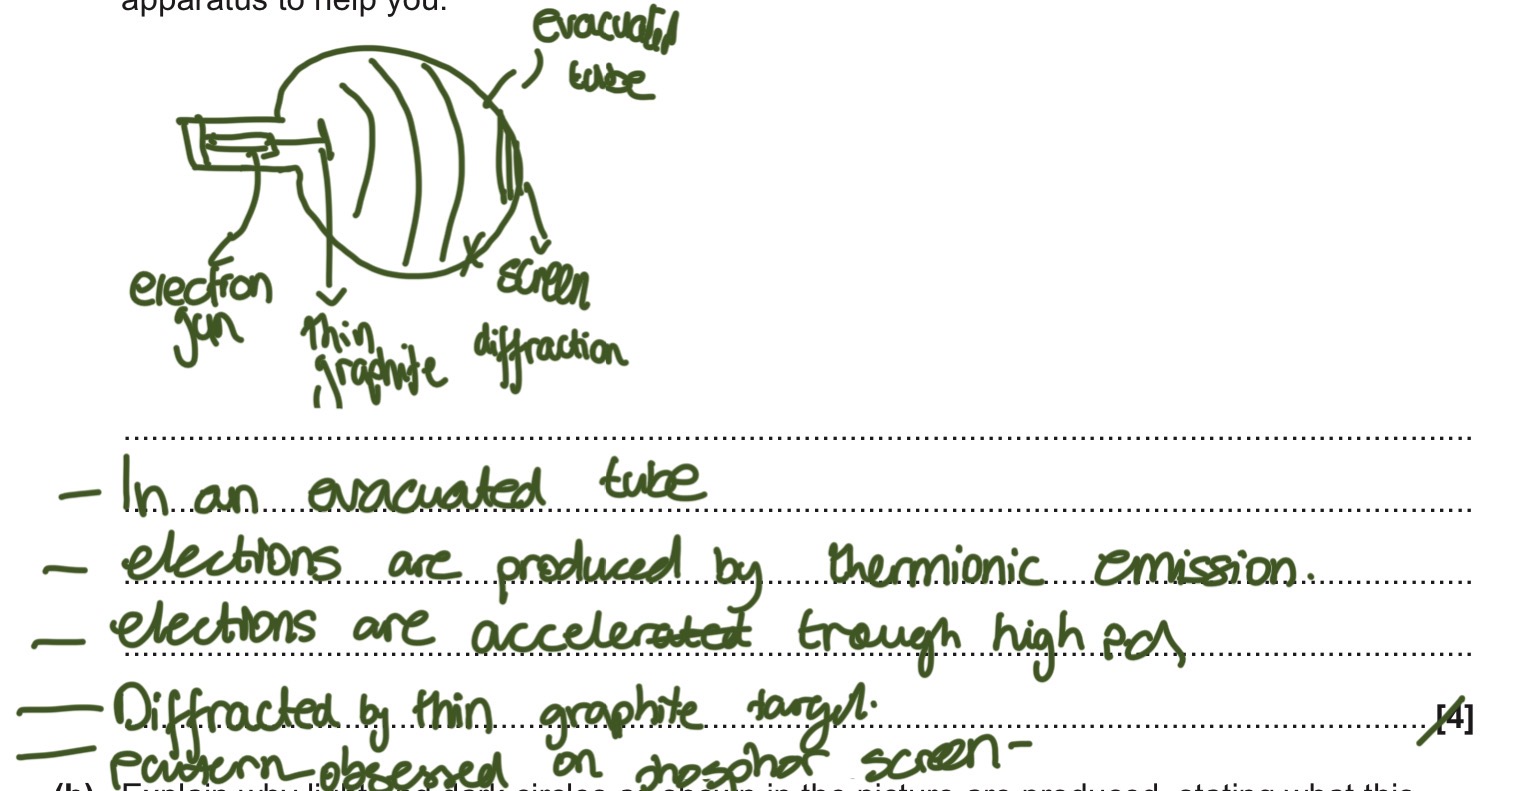 apparatus to help you.
evacuated
tube
electron
gun
thin
graphite
screen
diffraction
- In an evacuated tube
- electrons are produced by thermionic emission.
- electrons are accelerated trough high p.d,
- Diffracted by thin graphite target.
[4]
- pattern observed on phosphor screen -
(b) Explain why light and dark circles as shown in the picture are produced, stating what this